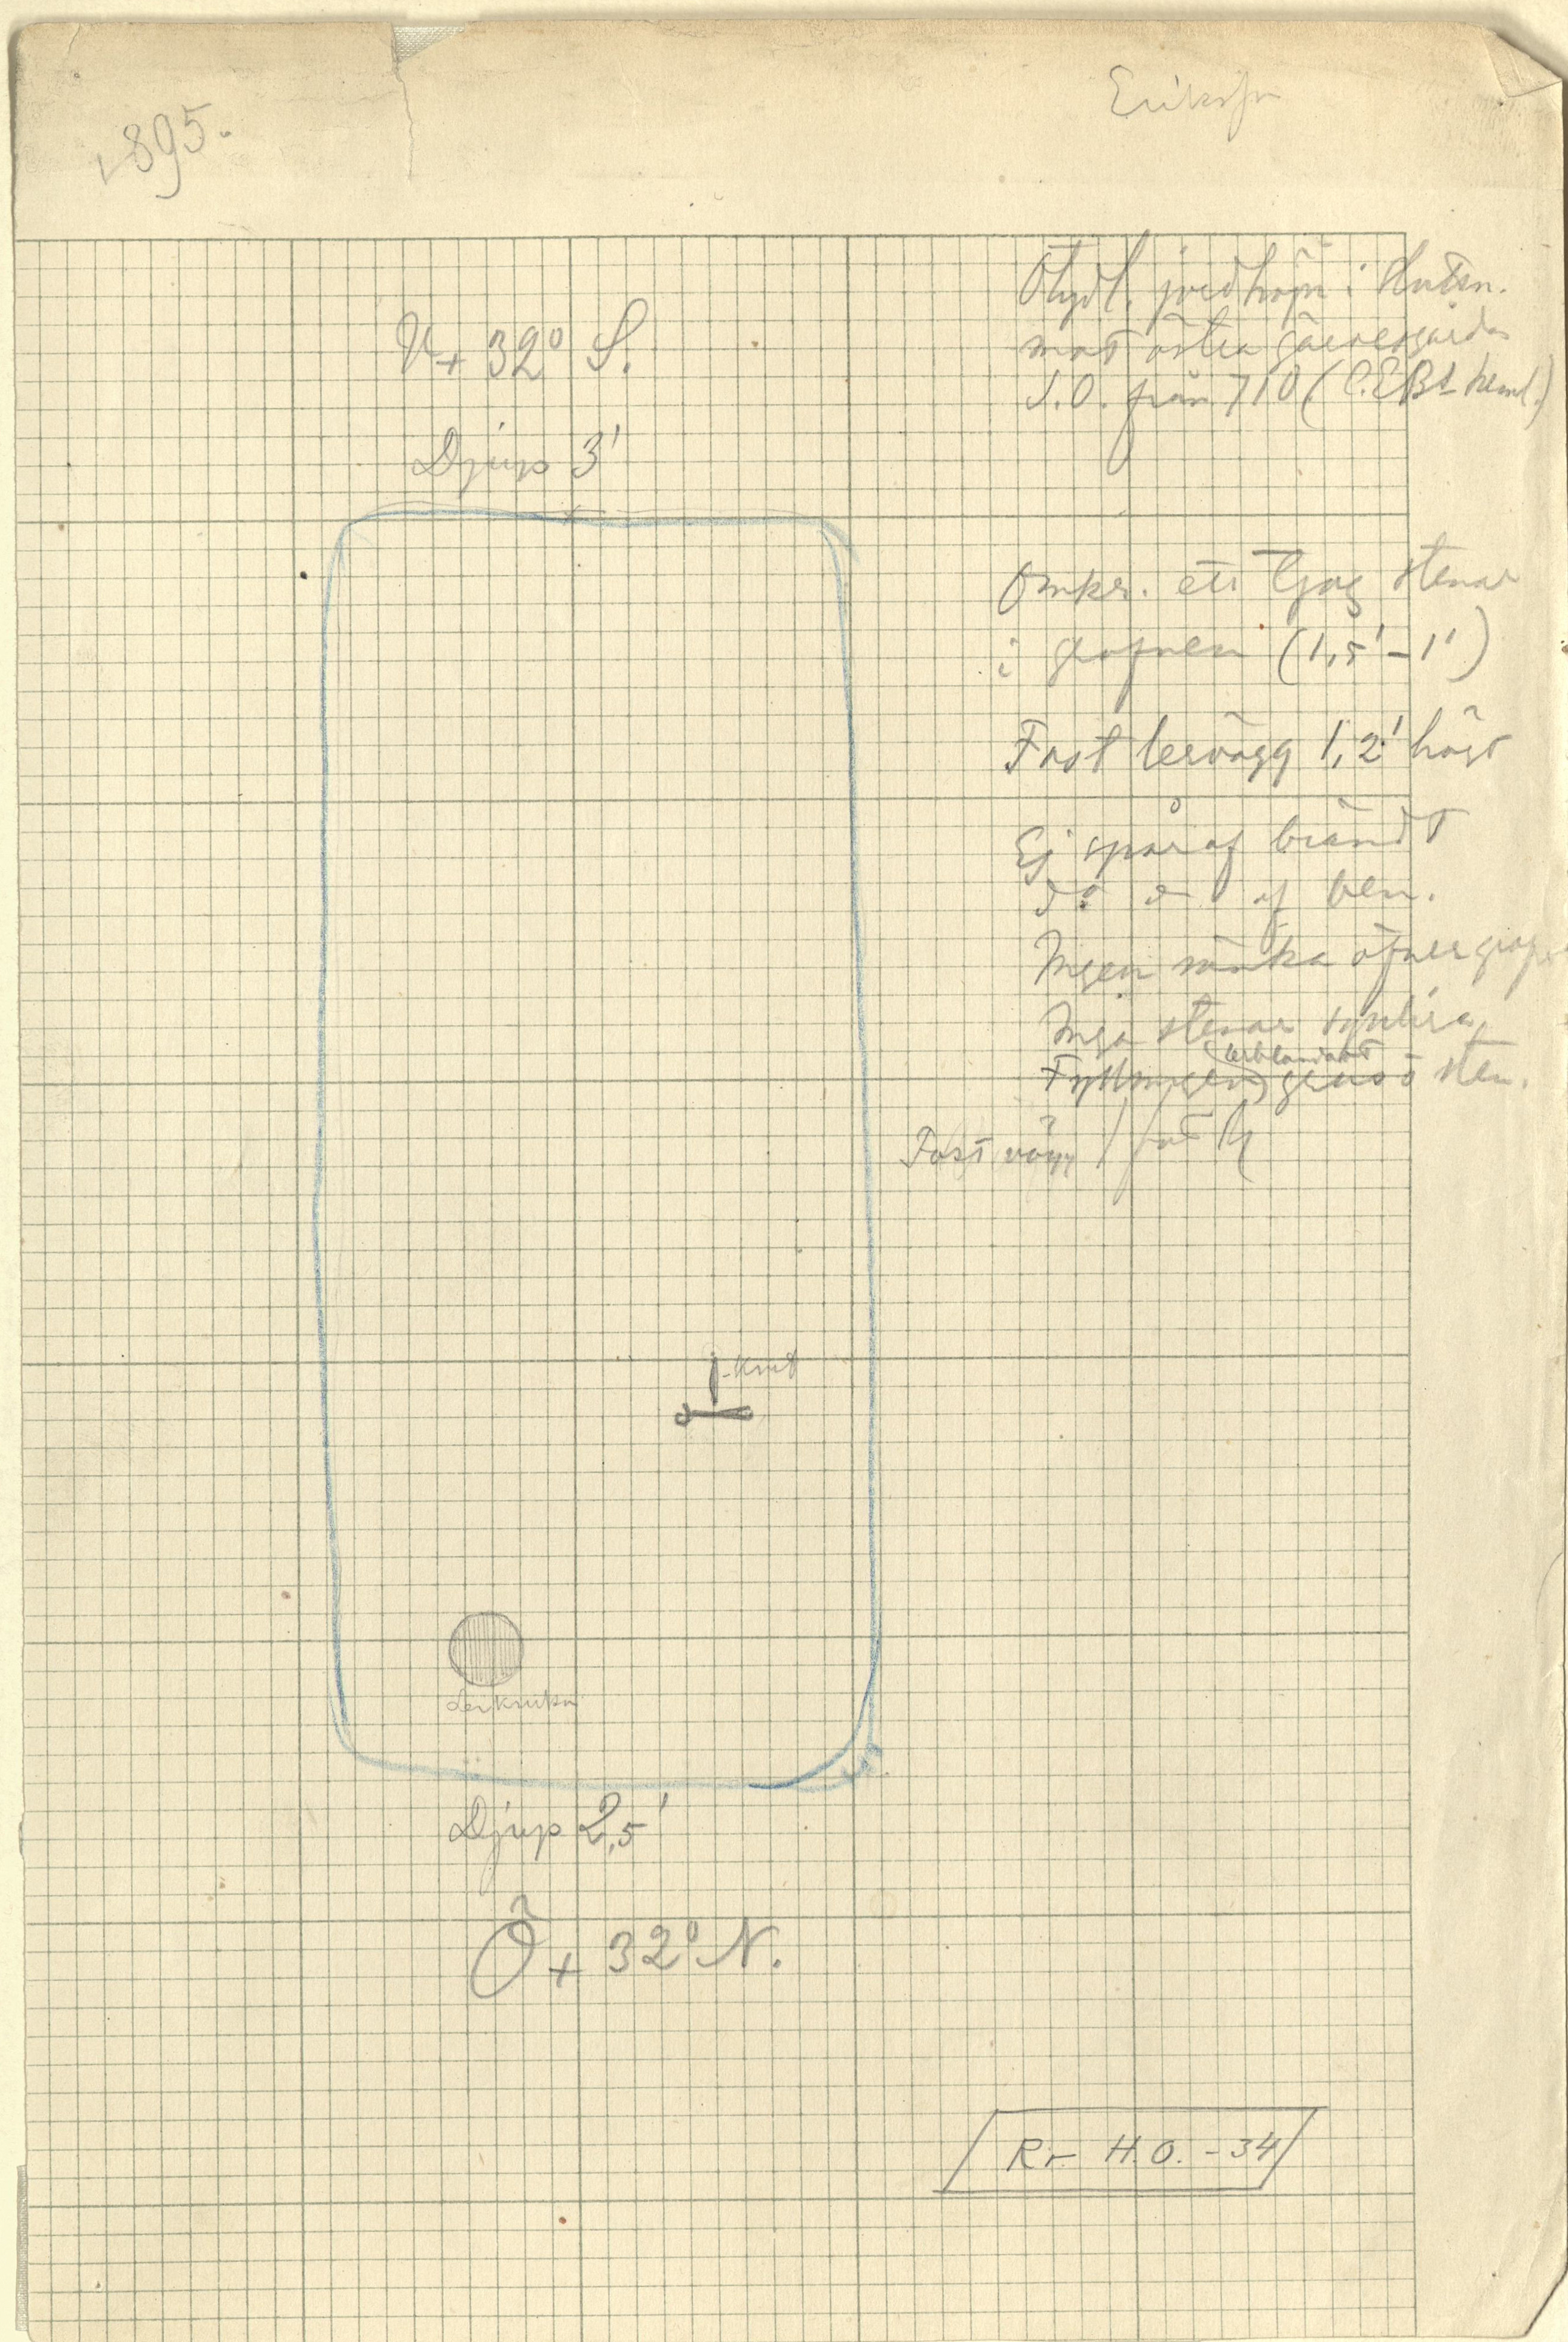 895.
Otydl. jordhög i
mot östra gärdesgården
S.O. från 710 (C.E.Bs heml.)
V + 32° S.
Djup 3'
Omkr. ett tjog stenar
i grafven (1,5' - 1')
Fast lervägg 1,2' hög
Ej spår af brändt
d:o d:o af ben.
Ingen sänka öfver
Inga stenar synliga
lerblandadt
Fyllningen grus o sten.
Fast vägg 1 fot
knif
Lerkruka
Djup 2,5'
Ö + 32° N.
Rr H.O. - 34